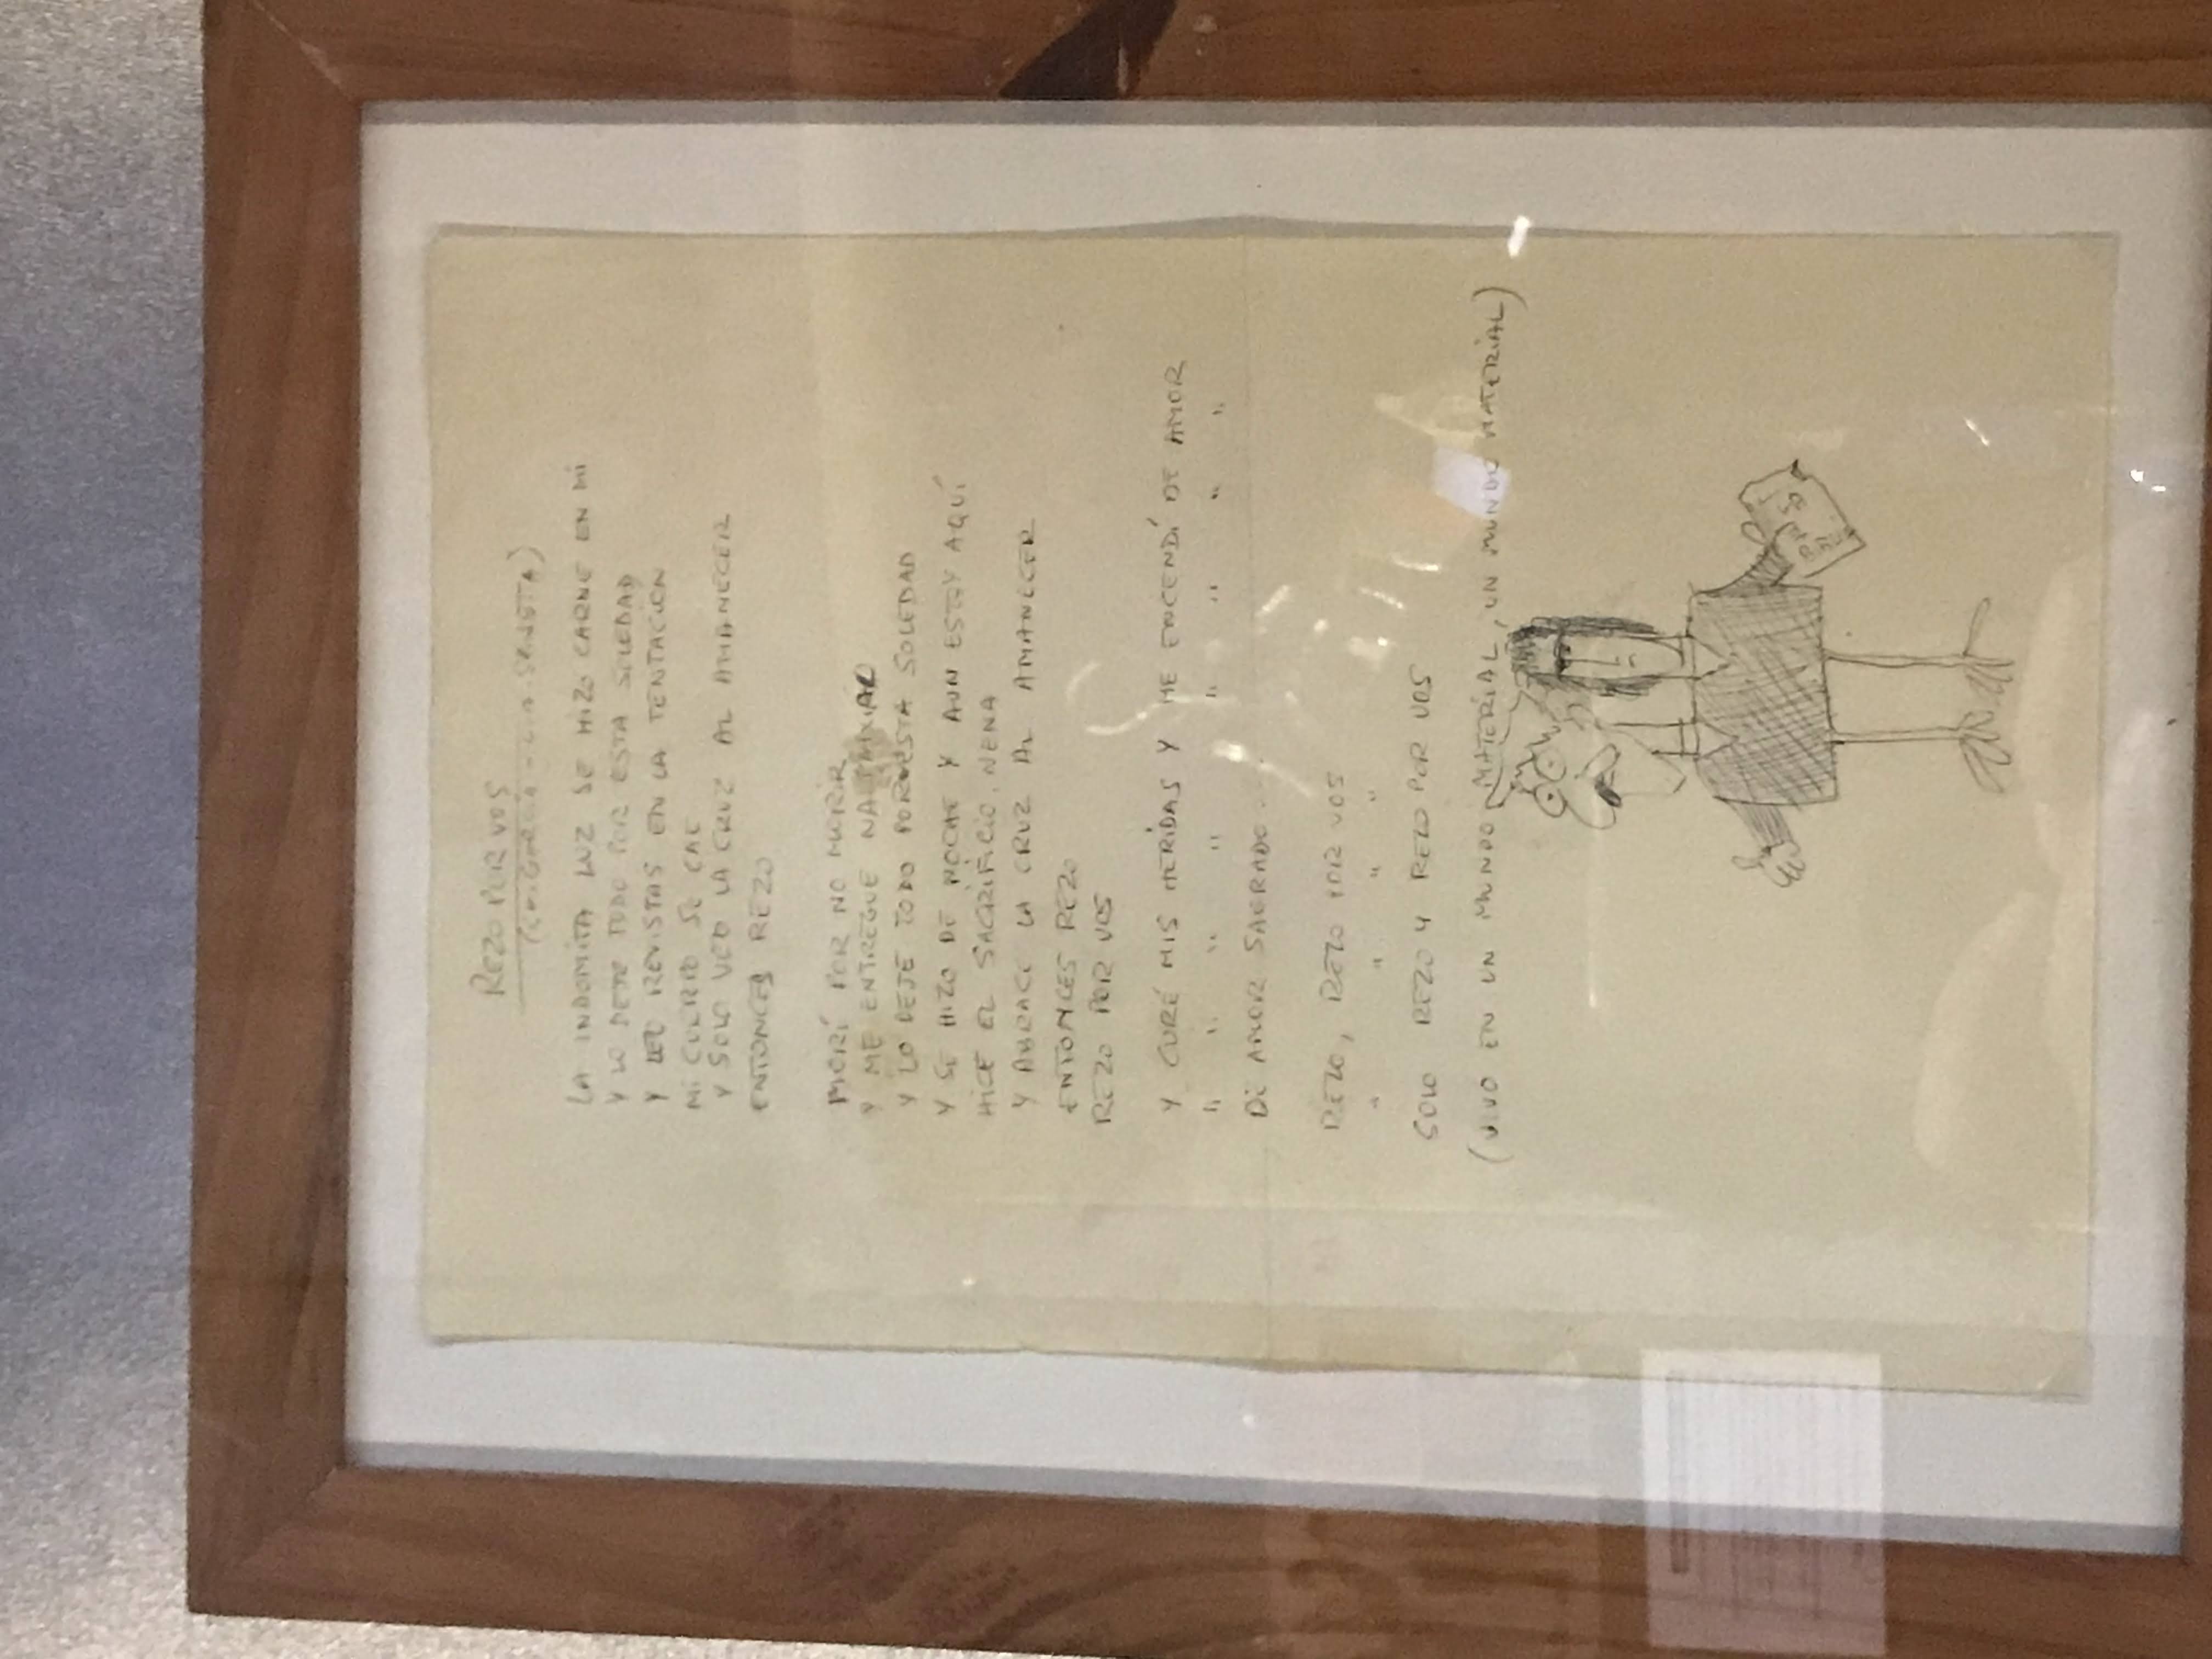 REZO POR VOS
(CH. GARCÍA - L.A. SPINETTA)
LA INDOMITA LUZ SE HIZO CARNE EN MI
Y LO DEJE TODO POR ESTA SOLEDAD
Y LEO REVISTAS EN LA TENTACION
MI CUERPO SE CAE
Y SOLO VEO LA CRUZ AL AMANECER
ENTONCES REZO
MORÍ POR NO MORIR
Y ME ENTREGUE
Y LO DEJE TODO POR ESTA SOLEDAD
Y SE HIZO DE NOCHE Y AUN ESTOY AQUÍ
HICE EL SACRIFICIO, NENA
Y ABRACE LA CRUZ AL AMANECER
ENTONCES REZO
REZO POR VOS
Y CURÉ MIS HERIDAS Y ME ENCENDÍ DE AMOR
" " " " " " " "
DE AMOR SAGRADO
REZO, REZO POR VOS
" " " "
SOLO REZO Y REZO POR VOS
(VIVO EN UN MUNDO MATERIAL, UN MUNDO MATERIAL)